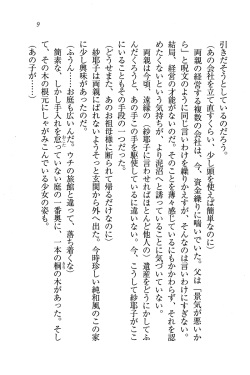 9
引きだそうとしているのだろう。
（あの会社を立て直すくらい、私の頭を使えば簡単なのに）
両親の経営する複数の会社は、今、資金繰りに喘いでいた。父は「景気が悪いか
ら」と呪文のように同じ言いわけを繰りかえすが、そんなのは言いわけにすぎない。
結局、経営の才能がないのだ。このことを薄々感じているにもかかわらず、それを認
めたくないという気持ちが、より泥沼へと誘っていることに気づいていない。
両親は今頃、遠縁の（紗耶子に言わせればほとんど他人の）遺産をどうにかふ
んだくろうと、あの手この手を駆使しているに違いない。今、こうして紗耶子がここ
にいることもその手段の一つだった。
（どうせまた、あのお祖母様に断られて帰るだけなのに）
紗耶子は両親にばれないようそっと玄関から外へ出た。今時珍しい純和風のこの家
に少し興味があった。
（うわぁ……お庭も広いんだ。ウチの旅館と違って、落ち着くな）
簡素な、しかし手入れを怠っていない庭の一番奥に、一本の桐の木があった。そし
て、その木の根元にしゃがみこんでいる少女の姿も。
（あの子が……）